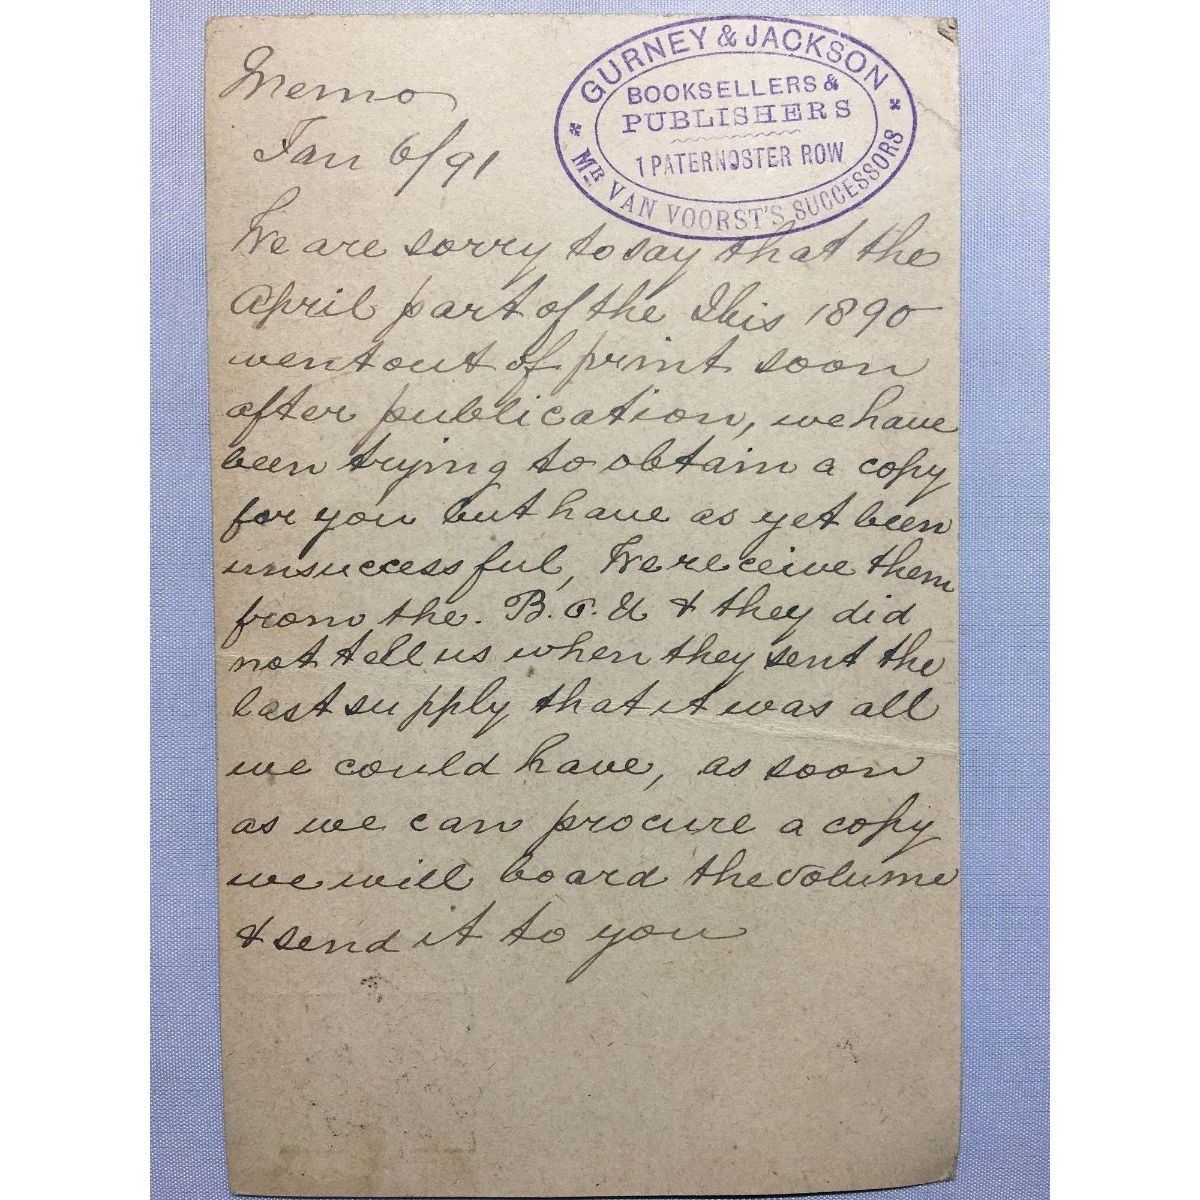 Memo
Jan 6/91
GURNEY & JACKSON
BOOKSELLERS &
PUBLISHERS
1 PATERNOSTER ROW
MR. VAN VOORST'S SUCCESSORS
We are sorry to say that the
April part of the Ibis 1890
went out of print soon
after publication, we have
been trying to obtain a copy
for you but have as yet been
unsuccessful, We receive them
from the. B.O.U & they did
not tell us when they sent the
last supply that it was all
we could have, as soon
as we can procure a copy
we will board the volume
& send it to you